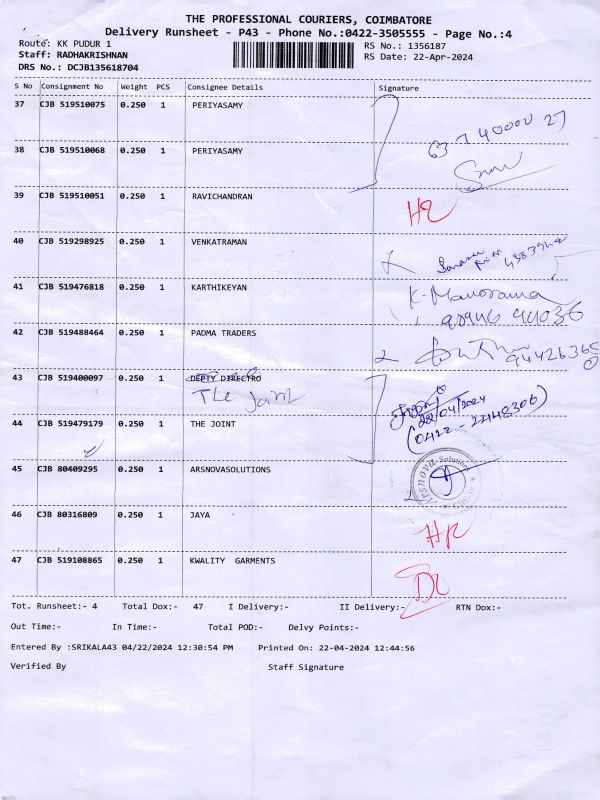 THE PROFESSIONAL COURIERS, COIMBATORE
Delivery Runsheet - P43 - Phone No.:0422-3505555 - Page No.:4
Route: KK PUDUR 1 RS No.: 1356187
Staff: RADHAKRISHNAN RS Date: 22-Apr-2024
DRS No.: DCJB135618704
S No Consignment No Weight PCS Consignee Details Signature
37 CJB 519510075 0.250 1 PERIYASAMY
38 CJB 519510068 0.250 1 PERIYASAMY
39 CJB 519510051 0.250 1 RAVICHANDRAN
40 CJB 519298925 0.250 1 VENKATRAMAN
41 CJB 519476818 0.250 1 KARTHIKEYAN K. Manorama
42 CJB 519488464 0.250 1 PADMA TRADERS
43 CJB 519400097 0.250 1 DEPTY DIRECTRO
The Joint
22/04/2024
44 CJB 519479179 0.250 1 THE JOINT (0422 - 2448306)
45 CJB 80409295 0.250 1 ARSNOVASOLUTIONS
46 CJB 80316809 0.250 1 JAYA
47 CJB 519108865 0.250 1 KWALITY GARMENTS DL
Tot. Runsheet:- 4 Total Dox:- 47 I Delivery:- II Delivery:- RTN Dox:-
Out Time:- In Time:- Total POD:- Delvy Points:-
Entered By :SRIKALA43 04/22/2024 12:30:54 PM Printed On: 22-04-2024 12:44:56
Verified By Staff Signature